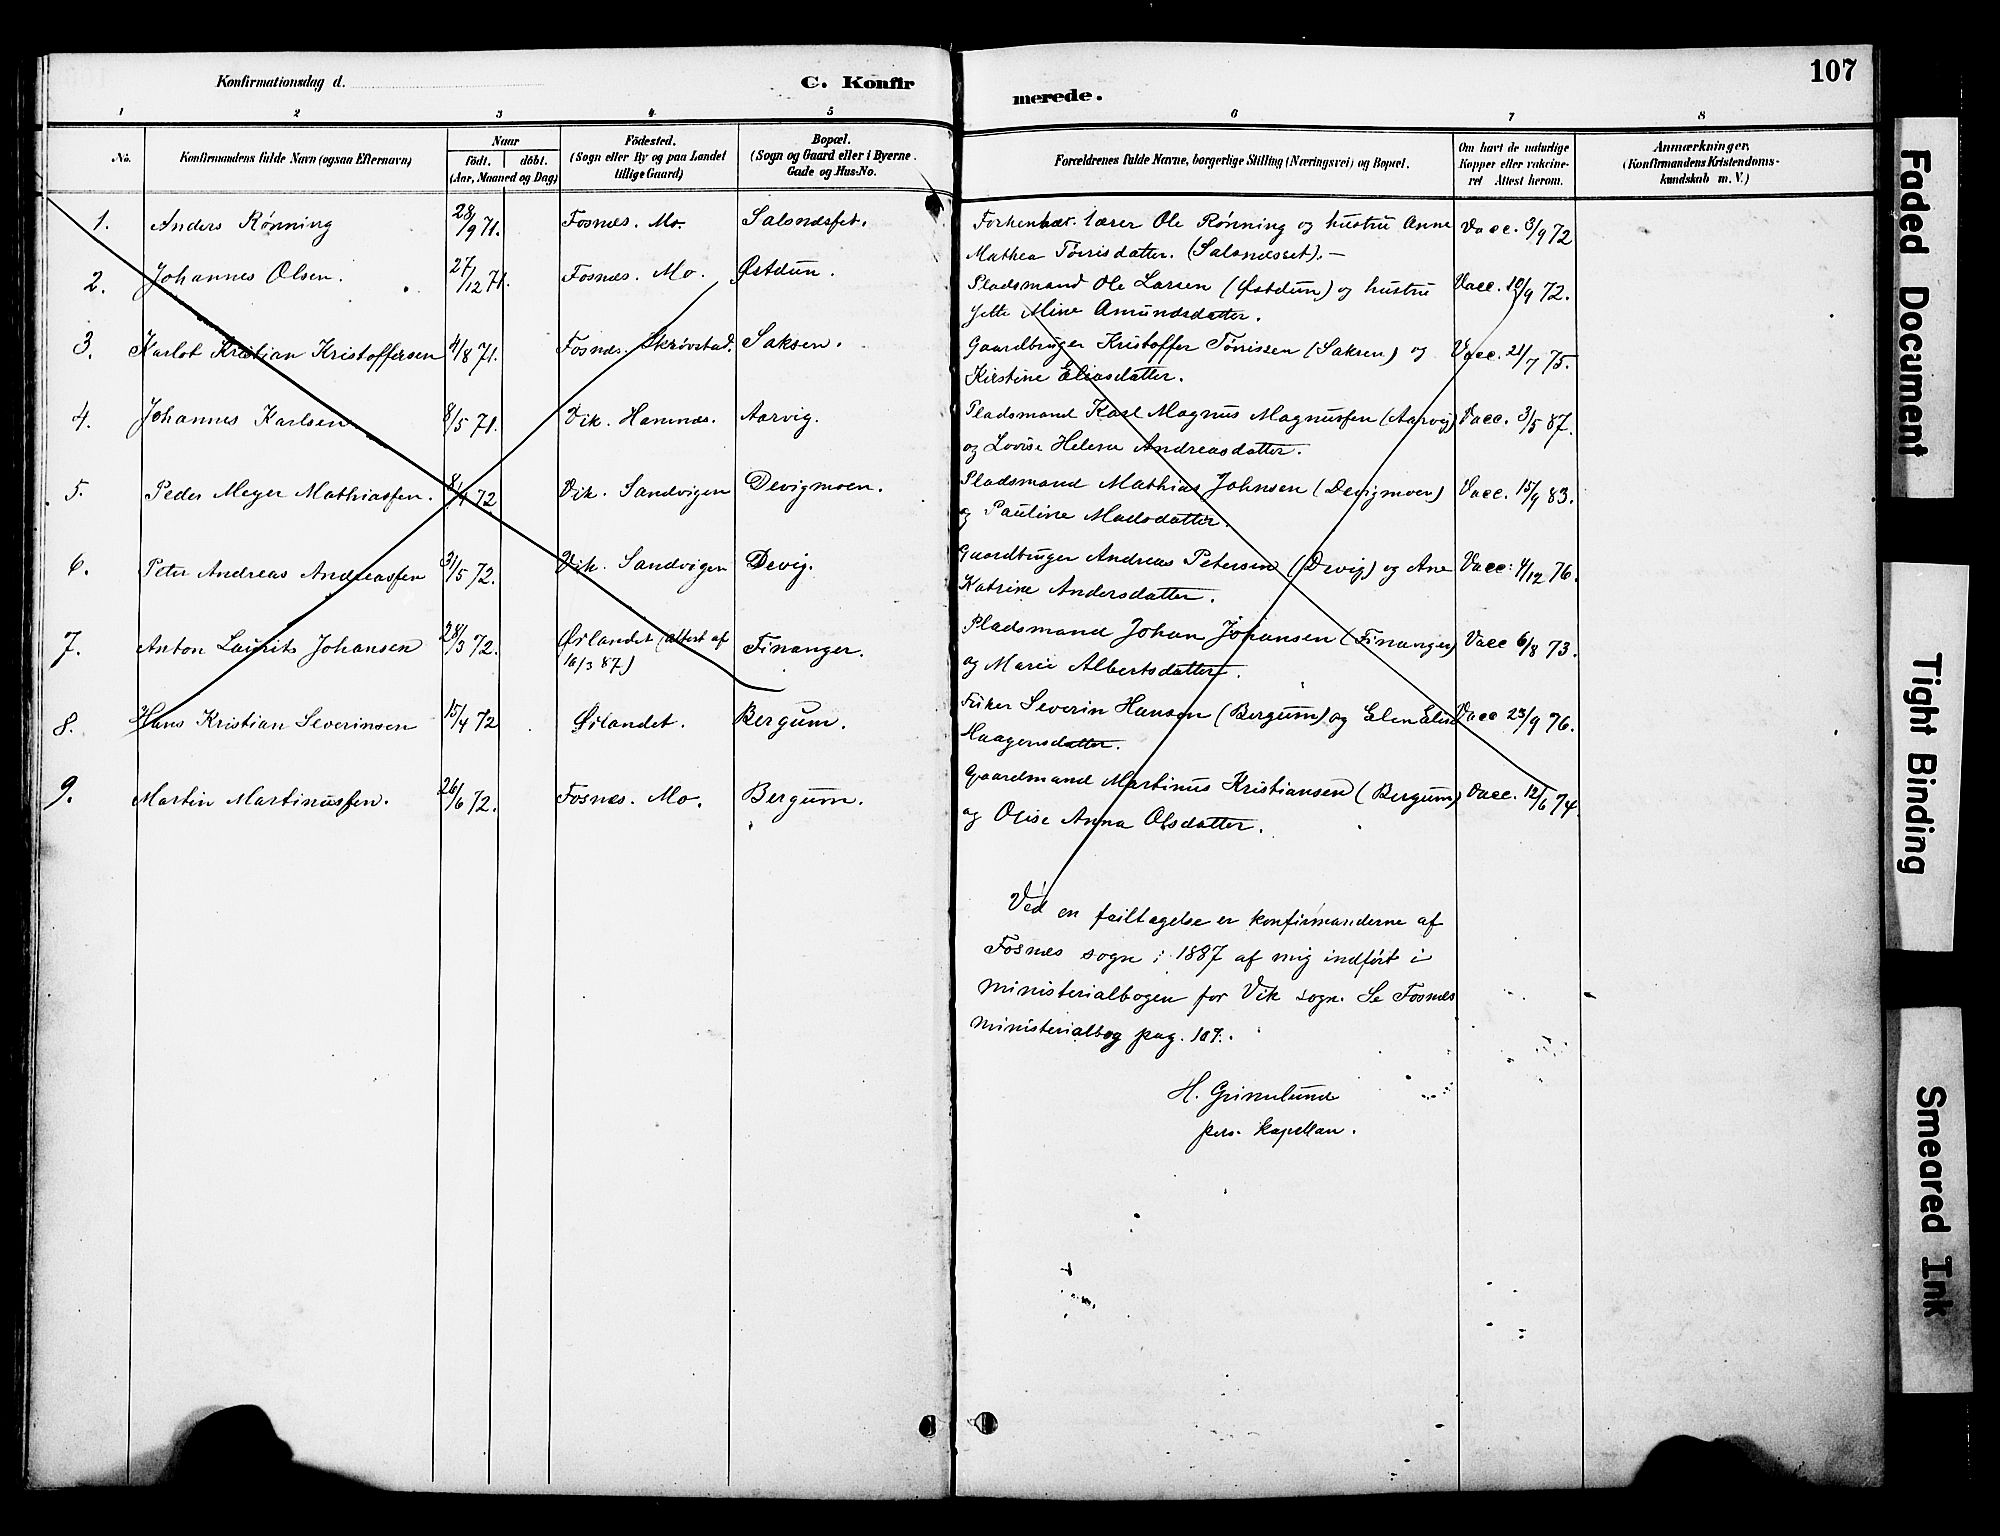 Konfirmationsdag d.
C. Konfirmerede.
107
1 2 3 4 5 6 7 8
No.
Konfirmandens fulde Navn (ogsaa Efternavn)
Naar
født. døbt.
(Aar, Maaned og Dag)
Fødested.
(Sogn eller By og paa Landet
tillige Gaard)
Bopæl.
(Sogn og Gaard eller i Byerne.
Gade og Hus-No.
Forældrenes fulde Navne, borgerlige Stilling (Næringsvei) og Bopæl.
Om havt de naturlige
Kopper eller vakcine-
ret Attest herom.
Anmærkninger.
(Konfirmandens Kristendoms-
kundskab m. V.)
1. Anders Rönning 28/9 71. Fosnæs. Mo. Salsnæsset. Forhenvæt. lærer Ole Rönning og hustru Anne Vacc. 3/9 72
Mathea Tørrisdatter. (Salsnæsset). —
2. Johannes Olsen. 27/12 71. Fosnæs. Mo. Østdun. Pladsmand Ole Larsen (Østdun) og hustru Vacc. 10/9 72.
Jette Mine Amundsdatter.
3. Karlot Kristian Kristoffersen 4/8 71. Fosnæs. Skrövstad. Saksen. Gaardbruger Kristoffer Tørrissen (Saksen) og Vacc. 21/7 75.
Kirstine Eliasdatter.
4. Johannes Karlsen 8/5 71. Vik. Hamnæs. Aarvig. Pladsmand Karl Magnus Magnussen (Aarvig) Vacc. 3/5 87.
og Lovise Helene Andreasdatter.
5. Peder Meyer Mathiassen. 8/4 72 Vik. Sandvigen Devigmoen. Pladsmand Mathias Johnsen (Devigmoen) Vacc. 15/9 83.
og Pauline Madsdatter.
6. Peter Andreas Andreassen 31/5 72. Vik. Sandvigen Devig. Gaardbruger Andreas Petersen (Devig) og Ane Vacc: 4/12 76.
Katrine Andersdatter.
7. Anton Laurits Johansen 28/3 72. Ørlandet (attest af Finanger. Pladsmand Johan Johansen (Finanger) Vacc 6/8 73.
16/3 87) og Marie Albertsdatter.
8. Hans Kristian Severinsen 15/4 72 Ørlandet. Bergum. Fisker Severin Hansen (Bergum) og Elen Elise Vacc 23/9 76.
Haagensdatter.
9. Martin Martinussen. 26/6 72. Fosnæs. Mo. Bergum. Gaardmand Martinus Kristiansen (Bergum) Vacc. 12/6 74.
og Olise Anna Olsdatter.
Ved en feiltagelse er konfirmanderne af
Fosnæs sogn i 1887 af mig indført i
ministerialbogen for Vik sogn. Se Fosnæs
ministerialbog pag. 107.
H. Grimelund
pers. kapellan.
Faded Document
Tight Binding
Smeared Ink